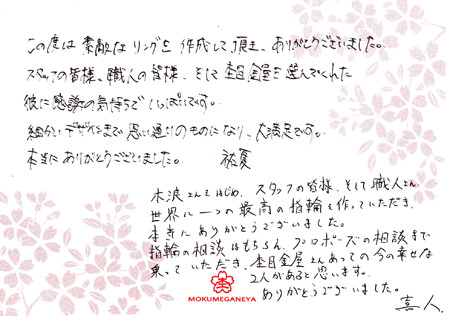 この度は素敵なリングを作成して頂き、ありがとうございました。
スタッフの皆様、職人の皆様、そして杢目金屋を選んでくれた
彼に感謝の気持ちでいっぱいです。
細かいデザインまで思い通りのものになり、大満足です。
本当にありがとうございました。 祐夏
木渡さんをはじめ、スタッフの皆様、そして職人さん
世界に一つの最高の指輪を作っていただき、
本当にありがとうございました。
指輪の相談はもちろん、プロポーズの相談まで
乗っていただき、杢目金屋さんあっての今の幸せな
2人があると思います。
ありがとうございました。
喜人
杢
MOKUMEGANEYA